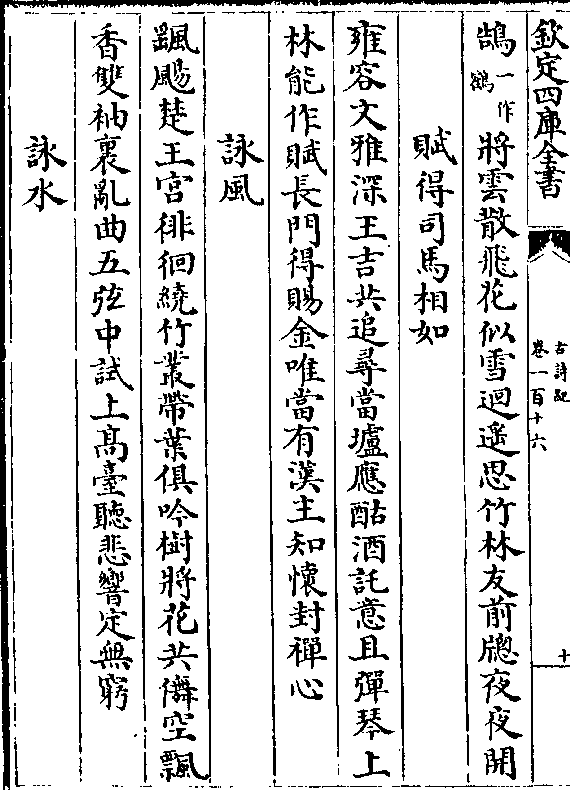 欽定四庫全書
古詩紀
卷一百十六
十
鵠一作鶴將雲散飛花似雪迴遥思竹林友前牎夜夜開
賦得司馬相如
雍容文雅深王吉共追尋當壚應酤酒託意且彈琴上
林能作賦長門得賜金唯當有漢主知懷封禪心
詠風
飄颺楚王宫徘徊繞竹叢帶葉俱吟樹將花共儛空飄
香雙袖裏亂曲五弦中試上髙臺聽悲響定無窮
詠水